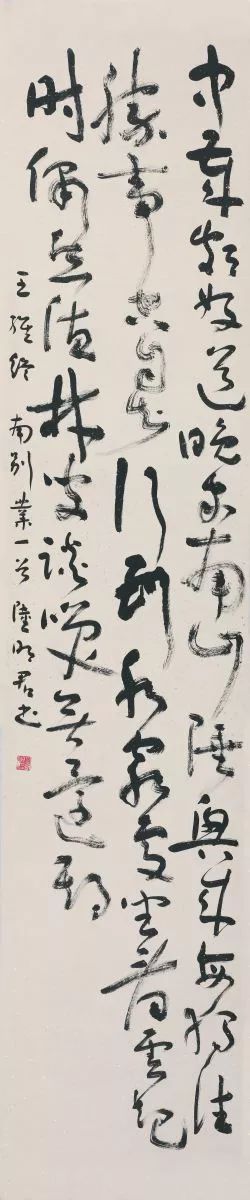 中歲頗好道晚家南山陲興來每獨往
勝事空自知行到水窮處坐看雲起
時偶然值林叟談笑無還期
王維終南別業一首 陸明君書